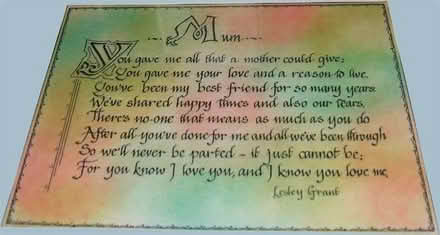 Mum
You gave me all that a mother could give;
You gave me your love and a reason to live.
You've been my best friend for so many years.
We've shared happy times and also our tears.
There's no-one that means as much as you do
After all you've done for me and all we've been through
So we'll never be parted - it just cannot be;
For you know I love you, and I know you love me.
Lesley Grant